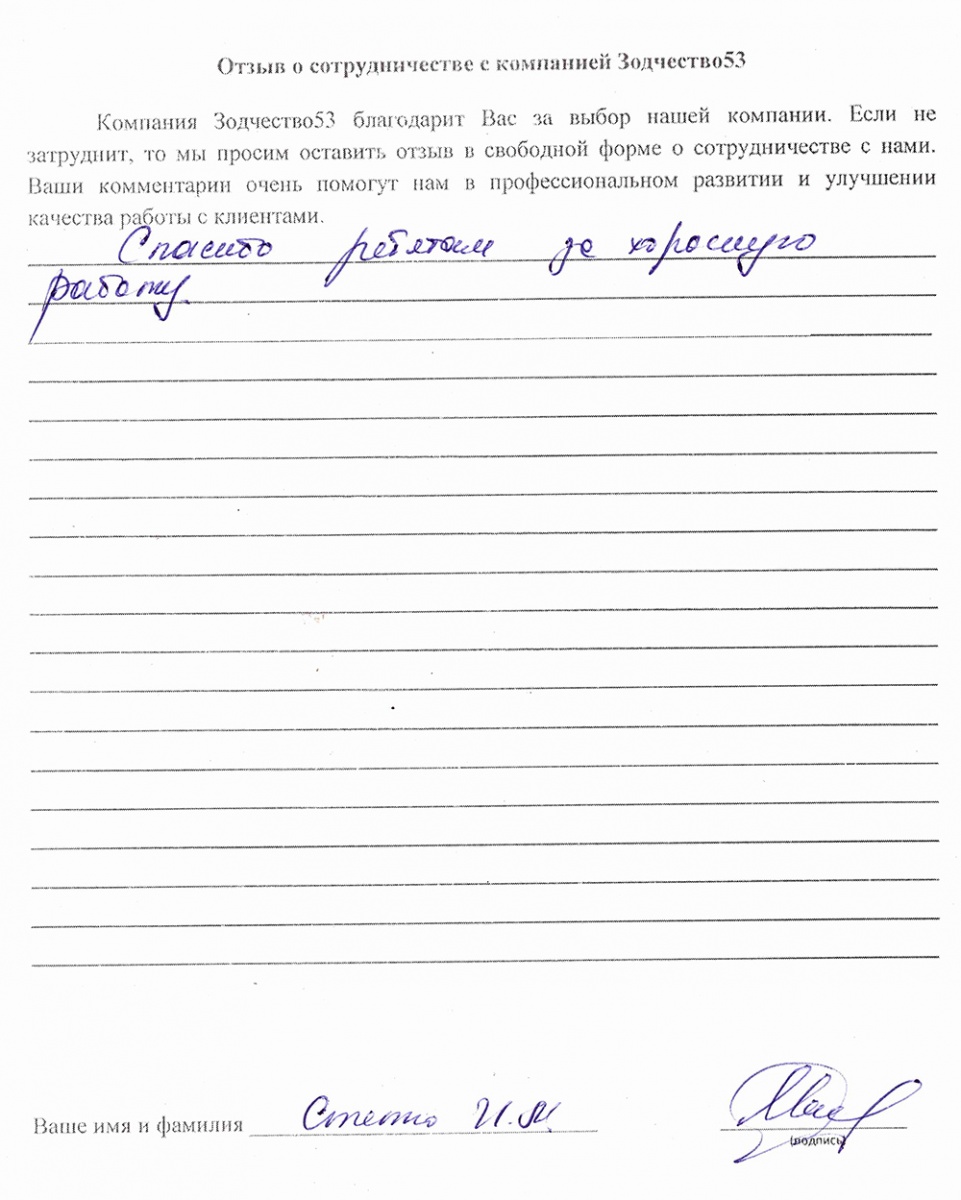 Отзыв о сотрудничестве с компанией Зодчество53
Компания Зодчество53 благодарит Вас за выбор нашей компании. Если не
затруднит, то мы просим оставить отзыв в свободной форме о сотрудничестве с нами.
Ваши комментарии очень помогут нам в профессиональном развитии и улучшении
качества работы с клиентами.
Спасибо ребятам за хорошую
работу.
Ваше имя и фамилия И.М.
(подпись)